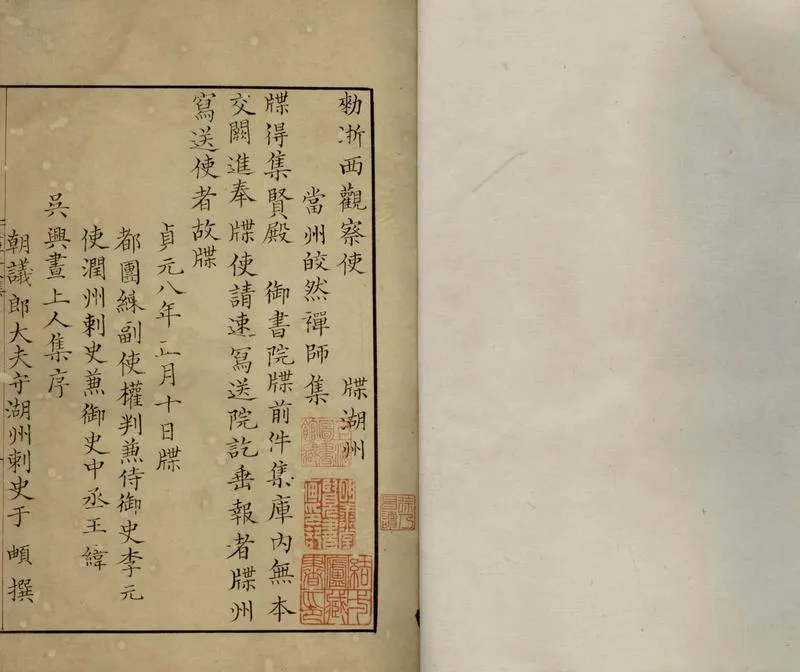 勑浙西觀察使 牒湖州
當州皎然禪師集
牒得集賢殿 御書院牒前件集庫內無本
交闕進奉牒使請速寫送院訖垂報者牒州
寫送使者故牒
貞元八年正月十日牒
都團練副使權判兼侍御史李元
使潤州刺史兼御史中丞王緯
吳興晝上人集序
朝議郎大夫守湖州刺史于 頔 撰